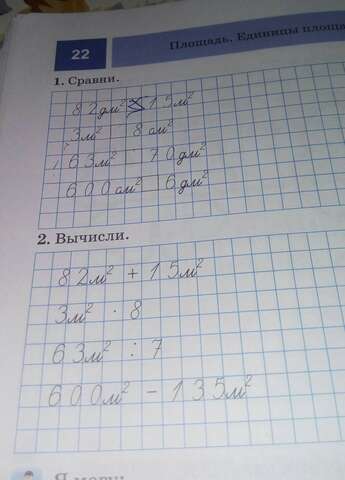 22
Площадь. Единицы площа
1. Сравни.
82дм² > 15м²
3м² 8см²
63м² 70дм²
600см² 6дм²
2. Вычисли.
82м² + 15м²
3м² · 8
63м² : 7
600м² - 135м²
Я могу: